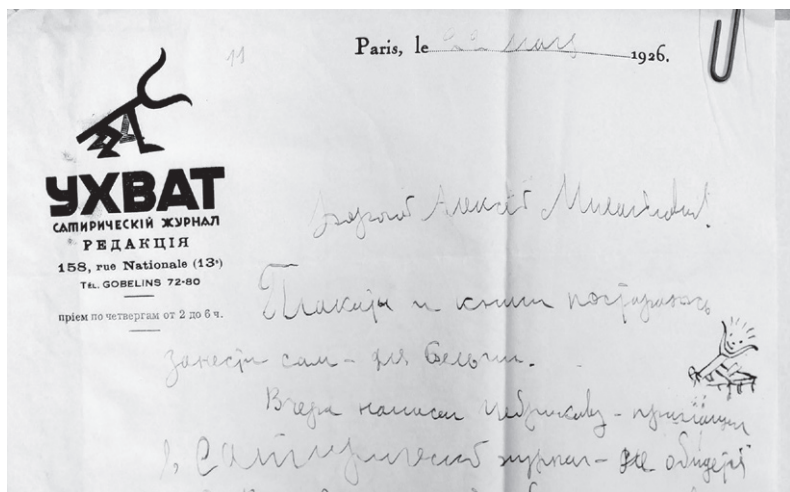 11
Paris, le 22 мая 1926.
УХВАТ
САТИРИЧЕСКІЙ ЖУРНАЛ
РЕДАКЦІЯ
158, rue Nationale (13ᵉ)
TÉL. GOBELINS 72-80
пріем по четвергам от 2 до 6 ч.
Дорогой Алексѣй Михайлович!
Плакаты и книги постараюсь
занести сам – для Бельгии.
Вчера написал – приглашал
в Сатирический журнал – не обидется